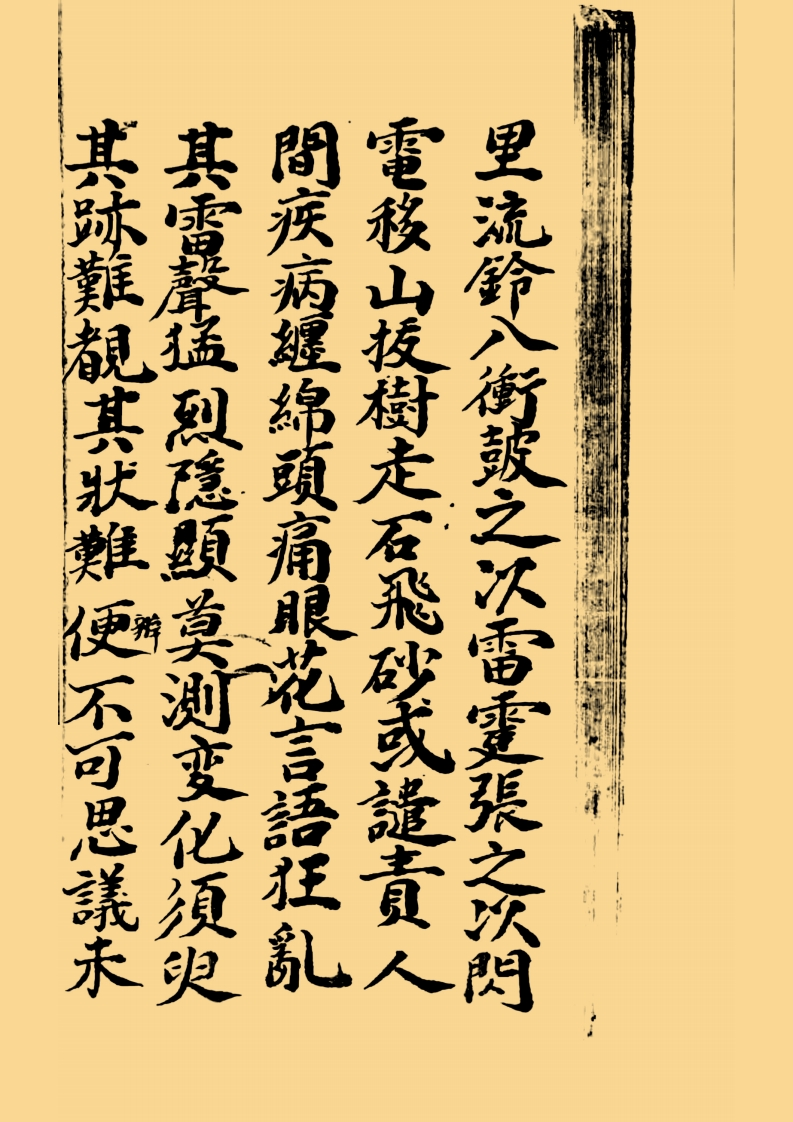 里流鈴八衝皷之次雷霆張之次閃
電移山拔樹走石飛砂或譴責人
間疾病纏綿頭痛眼花言語狂亂
其雷聲猛烈隱顯莫測変化須臾
其跡難覩其狀難便辦不可思議未